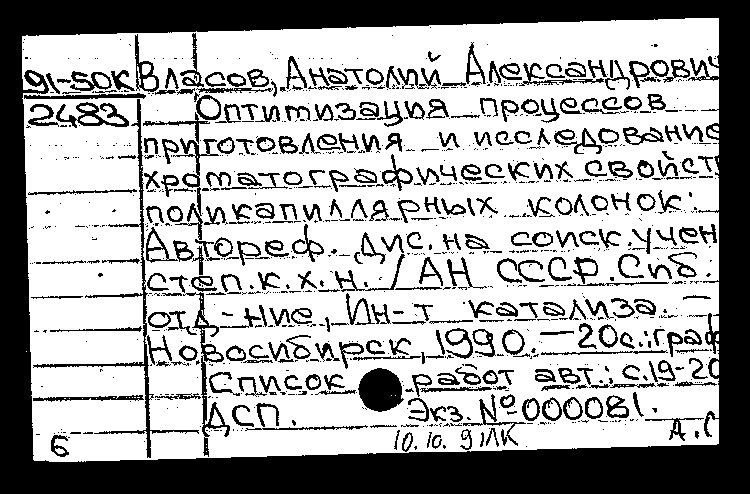 91-50К Власов, Анатолий Александрович
2483 Оптимизация процессов
приготовления и исследование
хроматографических свойств
поликапиллярных колонок:
Автореф. дис. на соиск. учен
степ. к. х. н. / АН СССР. Сиб.
отд-ние, Ин-т катализа. —
Новосибирск, 1990. — 20 с.: граф
Список работ авт.: с. 19-20
ДСП. Экз. № 000081.
Б 10.10.91 ЛК А.С